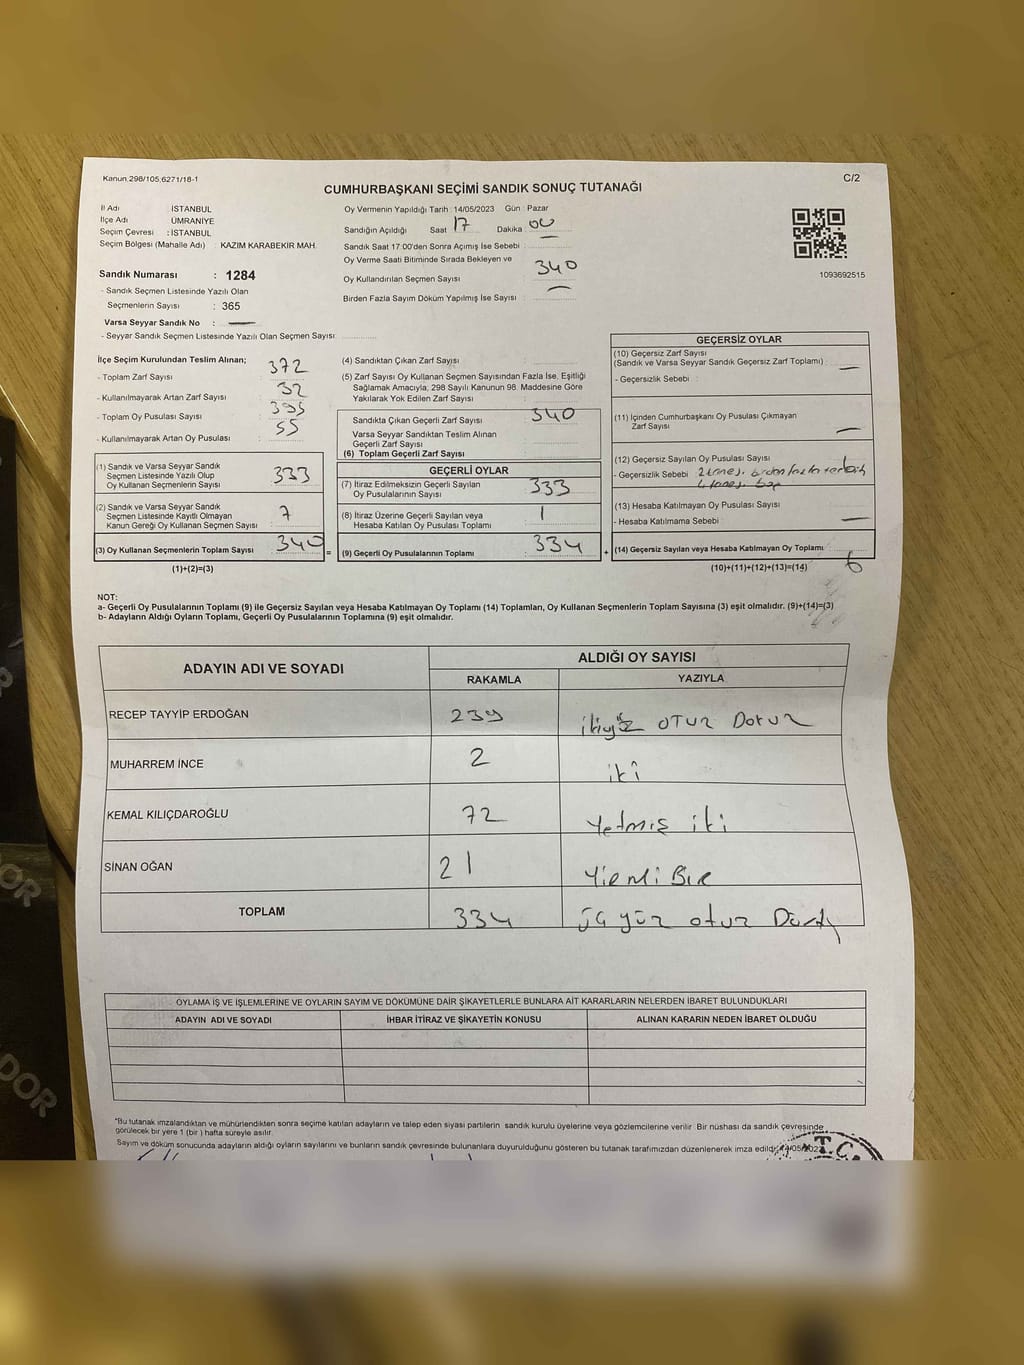 Kanun 298/105,6271/18-1
C/2
CUMHURBAŞKANI SEÇİMİ SANDIK SONUÇ TUTANAĞI
İl Adı : İSTANBUL
İlçe Adı ÜMRANİYE
Seçim Çevresi : İSTANBUL
Seçim Bölgesi (Mahalle Adı) : KAZIM KARABEKİR MAH.
Sandık Numarası : 1284
- Sandık Seçmen Listesinde Yazılı Olan
Seçmenlerin Sayısı : 365
Varsa Seyyar Sandık No : —
- Seyyar Sandık Seçmen Listesinde Yazılı Olan Seçmen Sayısı:
Oy Vermenin Yapıldığı Tarih : 14/05/2023 Gün : Pazar
Sandığın Açıldığı Saat 17 Dakika : 00
Sandık Saat 17:00'den Sonra Açımış İse Sebebi :
Oy Verme Saati Bitiminde Sırada Bekleyen ve
Oy Kullandırılan Seçmen Sayısı : 340
Birden Fazla Sayım Döküm Yapılmış İse Sayısı : —
1093692515
İlçe Seçim Kurulundan Teslim Alınan;
- Toplam Zarf Sayısı : 372
- Kullanılmayarak Artan Zarf Sayısı : 32
- Toplam Oy Pusulası Sayısı : 395
- Kullanılmayarak Artan Oy Pusulası : 55
(1) Sandık ve Varsa Seyyar Sandık
Seçmen Listesinde Yazılı Olup
Oy Kullanan Seçmenlerin Sayısı : 333
(2) Sandık ve Varsa Seyyar Sandık
Seçmen Listesinde Kayıtlı Olmayan
Kanun Gereği Oy Kullanan Seçmen Sayısı : 7
(3) Oy Kullanan Seçmenlerin Toplam Sayısı : 340
(1)+(2)=(3)
=
(4) Sandıktan Çıkan Zarf Sayısı :
(5) Zarf Sayısı Oy Kullanan Seçmen Sayısından Fazla İse, Eşitliği
Sağlamak Amacıyla, 298 Sayılı Kanunun 98. Maddesine Göre
Yakılarak Yok Edilen Zarf Sayısı :
Sandıkta Çıkan Geçerli Zarf Sayısı : 340
Varsa Seyyar Sandıktan Teslim Alınan
Geçerli Zarf Sayısı
(6) Toplam Geçerli Zarf Sayısı :
GEÇERLİ OYLAR
(7) İtiraz Edilmeksizin Geçerli Sayılan
Oy Pusulalarının Sayısı : 333
(8) İtiraz Üzerine Geçerli Sayılan veya
Hesaba Katılan Oy Pusulası Toplamı : 1
(9) Geçerli Oy Pusulalarının Toplamı : 334
+
GEÇERSİZ OYLAR
(10) Geçersiz Zarf Sayısı
(Sandık ve Varsa Seyyar Sandık Geçersiz Zarf Toplamı) : —
- Geçersizlik Sebebi :
(11) İçinden Cumhurbaşkanı Oy Pusulası Çıkmayan
Zarf Sayısı : —
(12) Geçersiz Sayılan Oy Pusulası Sayısı
- Geçersizlik Sebebi : 2 tanesi birden fazla tercih
4 tanesi boş
(13) Hesaba Katılmayan Oy Pusulası Sayısı
- Hesaba Katılmama Sebebi : —
(14) Geçersiz Sayılan veya Hesaba Katılmayan Oy Toplamı : 6
(10)+(11)+(12)+(13)=(14)
NOT:
a- Geçerli Oy Pusulalarının Toplamı (9) ile Geçersiz Sayılan veya Hesaba Katılmayan Oy Toplamı (14) Toplamları, Oy Kullanan Seçmenlerin Toplam Sayısına (3) eşit olmalıdır. (9)+(14)=(3)
b- Adayların Aldığı Oyların Toplamı, Geçerli Oy Pusulalarının Toplamına (9) eşit olmalıdır.
ADAYIN ADI VE SOYADI
ALDIĞI OY SAYISI
RAKAMLA YAZIYLA
RECEP TAYYİP ERDOĞAN 239 ikiyüz OTUZ DOKUZ
MUHARREM İNCE 2 iki
KEMAL KILIÇDAROĞLU 72 Yetmiş iki
SİNAN OĞAN 21 YİRMİ BİR
TOPLAM 334 üç yüz otuz Dört
OYLAMA İŞ VE İŞLEMLERINE VE OYLARIN SAYIM VE DÖKÜMÜNE DAİR ŞİKAYETLERLE BUNLARA AİT KARARLARIN NELERDEN İBARET BULUNDUKLARI
ADAYIN ADI VE SOYADI İHBAR İTİRAZ VE ŞİKAYETİN KONUSU ALINAN KARARIN NEDEN İBARET OLDUĞU
*Bu tutanak imzalandıktan ve mühürlendikten sonra seçime katılan adayların ve talep eden siyasi partilerin sandık kurulu üyelerine veya gözlemcilerine verilir. Bir nüshası da sandık çevresinde
görülecek bir yere 1 (bir ) hafta süreyle asılır.
Sayım ve döküm sonucunda adayların aldığı oyların sayılarını ve bunların sandık çevresinde bulunanlara duyurulduğunu gösteren bu tutanak tarafımızdan düzenlenerek imza edildi.
T.C.
DOR